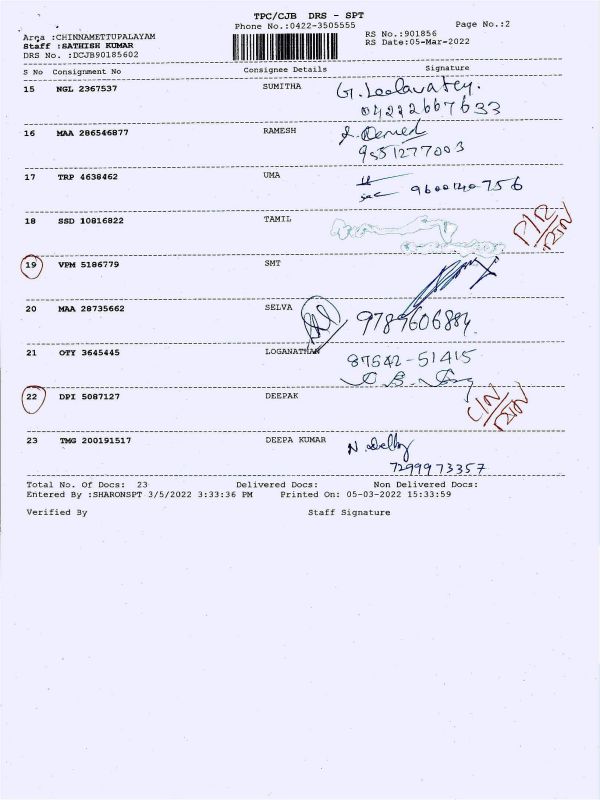 TPC/CJB DRS - SPT
Phone No.:0422-3505555 Page No.:2
Area :CHINNAMETTUPALAYAM RS No.:901856
Staff :SATHISH KUMAR RS Date:05-Mar-2022
DRS No. :DCJB90185602
S No Consignment No Consignee Details Signature
15 NGL 2367537 SUMITHA G. Leelavathy.
04222667633
16 MAA 286546877 RAMESH
9551277003
17 TRP 4638462 UMA 9600140756
18 SSD 10816822 TAMIL P/R
RTN
19 VPM 5186779 SMT
20 MAA 28735662 SELVA
21 OTY 3645445 LOGANATHAN 87542-51415
22 DPI 5087127 DEEPAK C/N
RTN
23 TMG 200191517 DEEPA KUMAR
7299973357
Total No. Of Docs: 23 Delivered Docs: Non Delivered Docs:
Entered By :SHARONSPT 3/5/2022 3:33:36 PM Printed On: 05-03-2022 15:33:59
Verified By Staff Signature